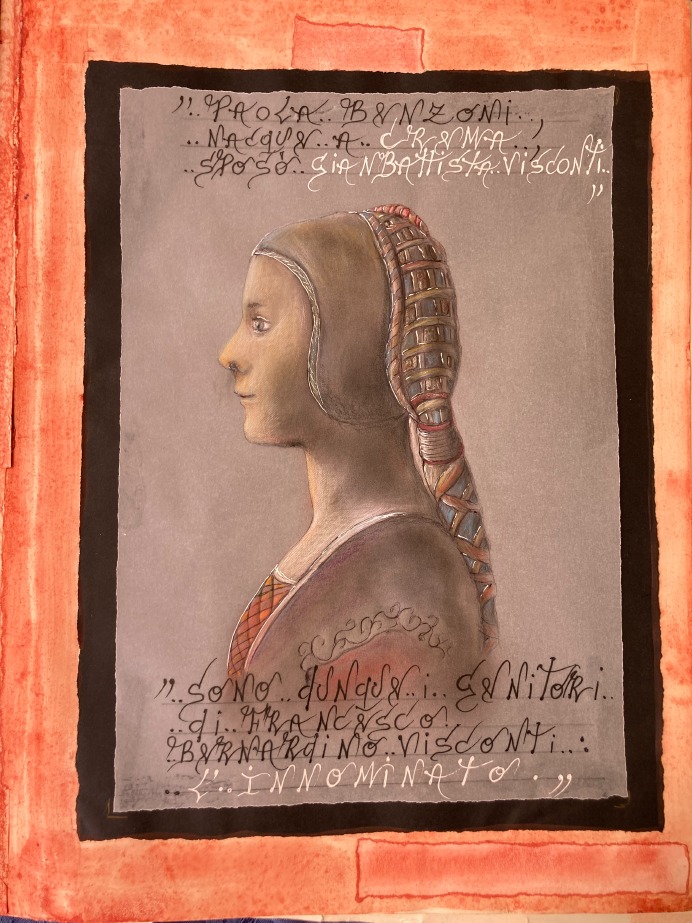 ".. PAOLA.. BENZONi..,
.. NAcQUE.. A.. CREMA..,
.. SPOSÒ.. GiANBAttistA.. ViSCONTi..
"
".. SONO.. dUNQUE.. i.. GENiTORi..
.. di.. FRANCESCO..
BERNARdiNO.. ViSCONTi..:
.. L'.. iNNOMiNATO. "